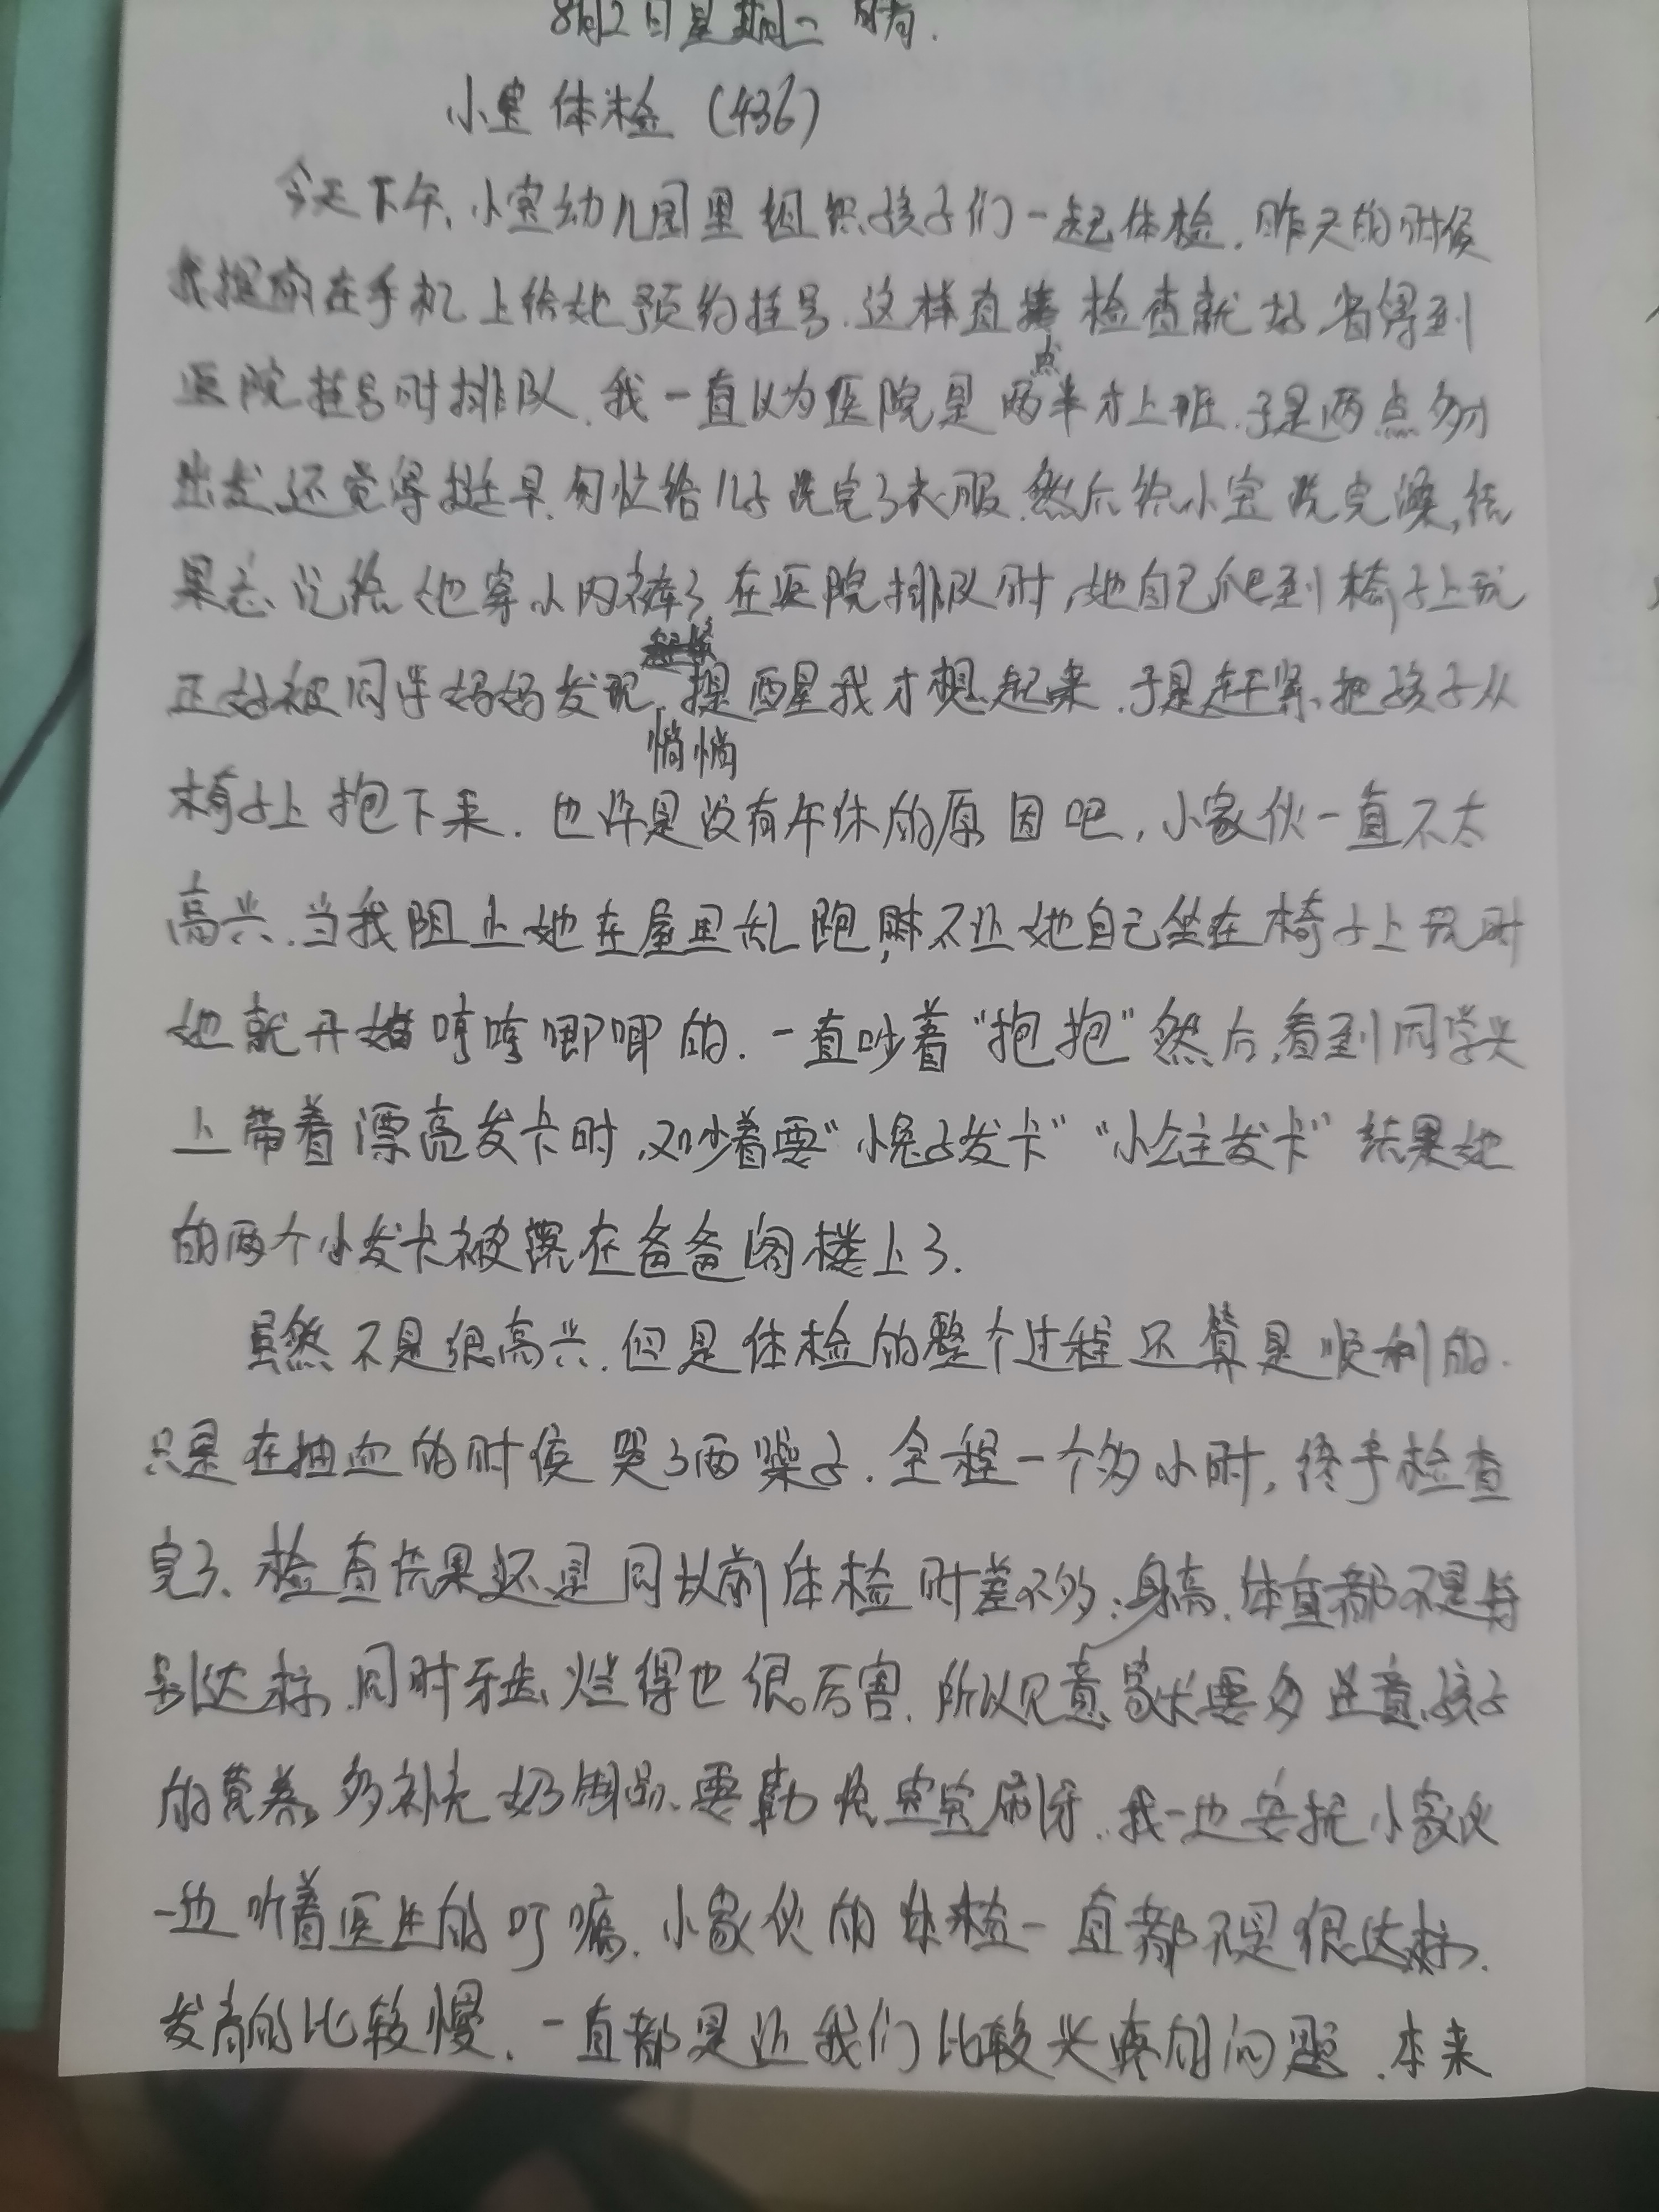 8月2日 星期二 晴.
小宝体检 (436)
今天下午,小宝幼儿园里组织孩子们一起体检.昨天的时候
我提前在手机上给她预约挂号.这样直接检查就好,省得到
医院挂号时排队.我一直以为医院是两点半才上班.于是两点多才
出发还觉得挺早.匆忙给儿子洗完了衣服.然后给小宝洗完澡,结
果忘记给她穿小内裤了.在医院排队时,她自己爬到椅子上玩
正好被同学妈妈发现.悄悄提醒我才想起来.于是赶紧把孩子从
椅子上抱下来.也许是没有午休的原因吧,小家伙一直不太
高兴.当我阻止她在屋里乱跑,不让她自己坐在椅子上玩时
她就开始哼哼唧唧的.一直吵着“抱抱”然后,看到同学头
上带着漂亮发卡时,又吵着要“小兔子发卡”“小公主发卡”结果她
的两个小发卡被落在爸爸阁楼上了.
虽然不是很高兴.但是体检的整个过程还算是顺利的.
只是在抽血的时候哭了两嗓子.全程一个多小时,终于检查
完了.检查结果还是同以前体检时差不多:身高.体重都不是特
别达标.同时牙齿烂得也很厉害.所以建议家长要多注意孩子
的营养,多补充奶制品.要勤快宝宝刷牙.我一边安抚小家伙
一边听着医生的叮嘱.小家伙的体检一直都不是很达标.
发育的比较慢.一直都是近我们比较头疼的问题.本来